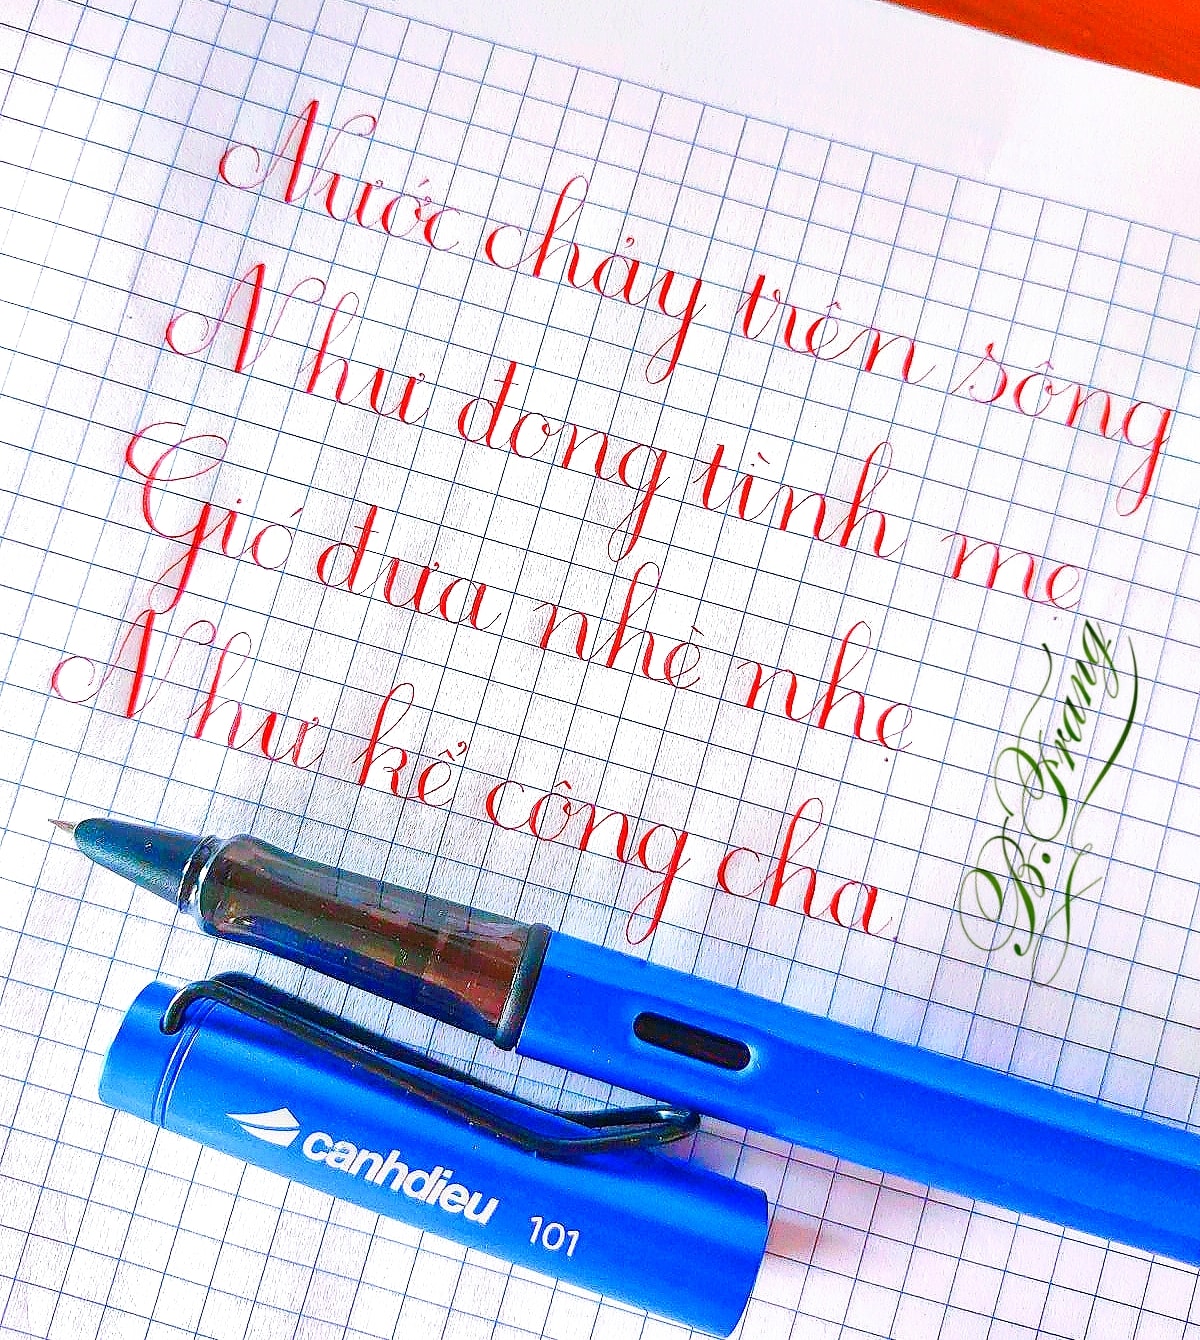 Nước chảy trên sông
Như đong tình mẹ
Gió đưa nhè nhẹ
Như kể công cha
B. Trang
canhdieu 101